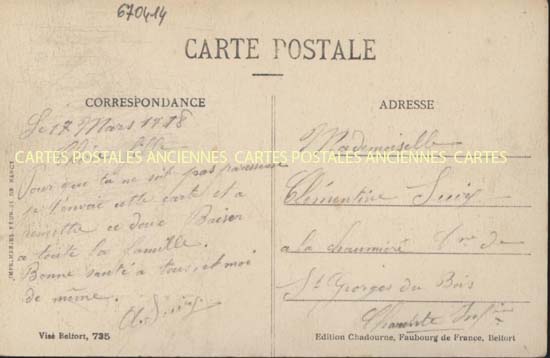 670414
CARTE POSTALE
CORRESPONDANCE
Le 17 Mars 1918
Chère
Pour que tu ne soit pas paresseuse
je t'envoie cette carte et a
remettre ce doux Baiser
a toute la famille.
Bonne santé a tous, et moi
de même.
ADRESSE
Mademoiselle
Clémentine
a la chaumière
St Georges du Bois
Charente Infre
CARTES POSTALES ANCIENNES CARTES POSTALES ANCIENNES CARTES
IMPRIMERIES RÉUNIES DE NANCY
Visé Belfort, 735
Edition Chadourne, Faubourg de France, Belfort